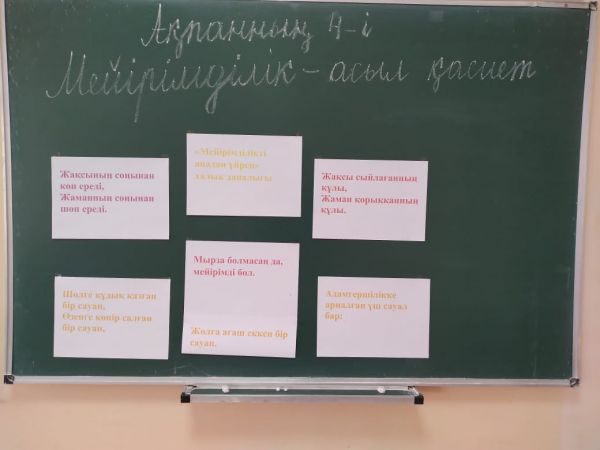 Ақпанның 4-і
Мейірімділік - асыл қасиет
Жақсының соңынан
көп ереді,
Жаманның соңынан
шөп ереді.
«Мейірімділікті
анадан үйрен»
халық даналығы
Жақсы сыйлағанның
құлы,
Жаман қорыққанның
құлы.
Шөлге құдық қазған
бір сауап,
Өзенге көпір салған
бір сауап,
Мырза болмасаң да,
мейірімді бол.
Жолға ағаш еккен бір
сауап.
Адамгершілікке
арналған үш сауал
бар: